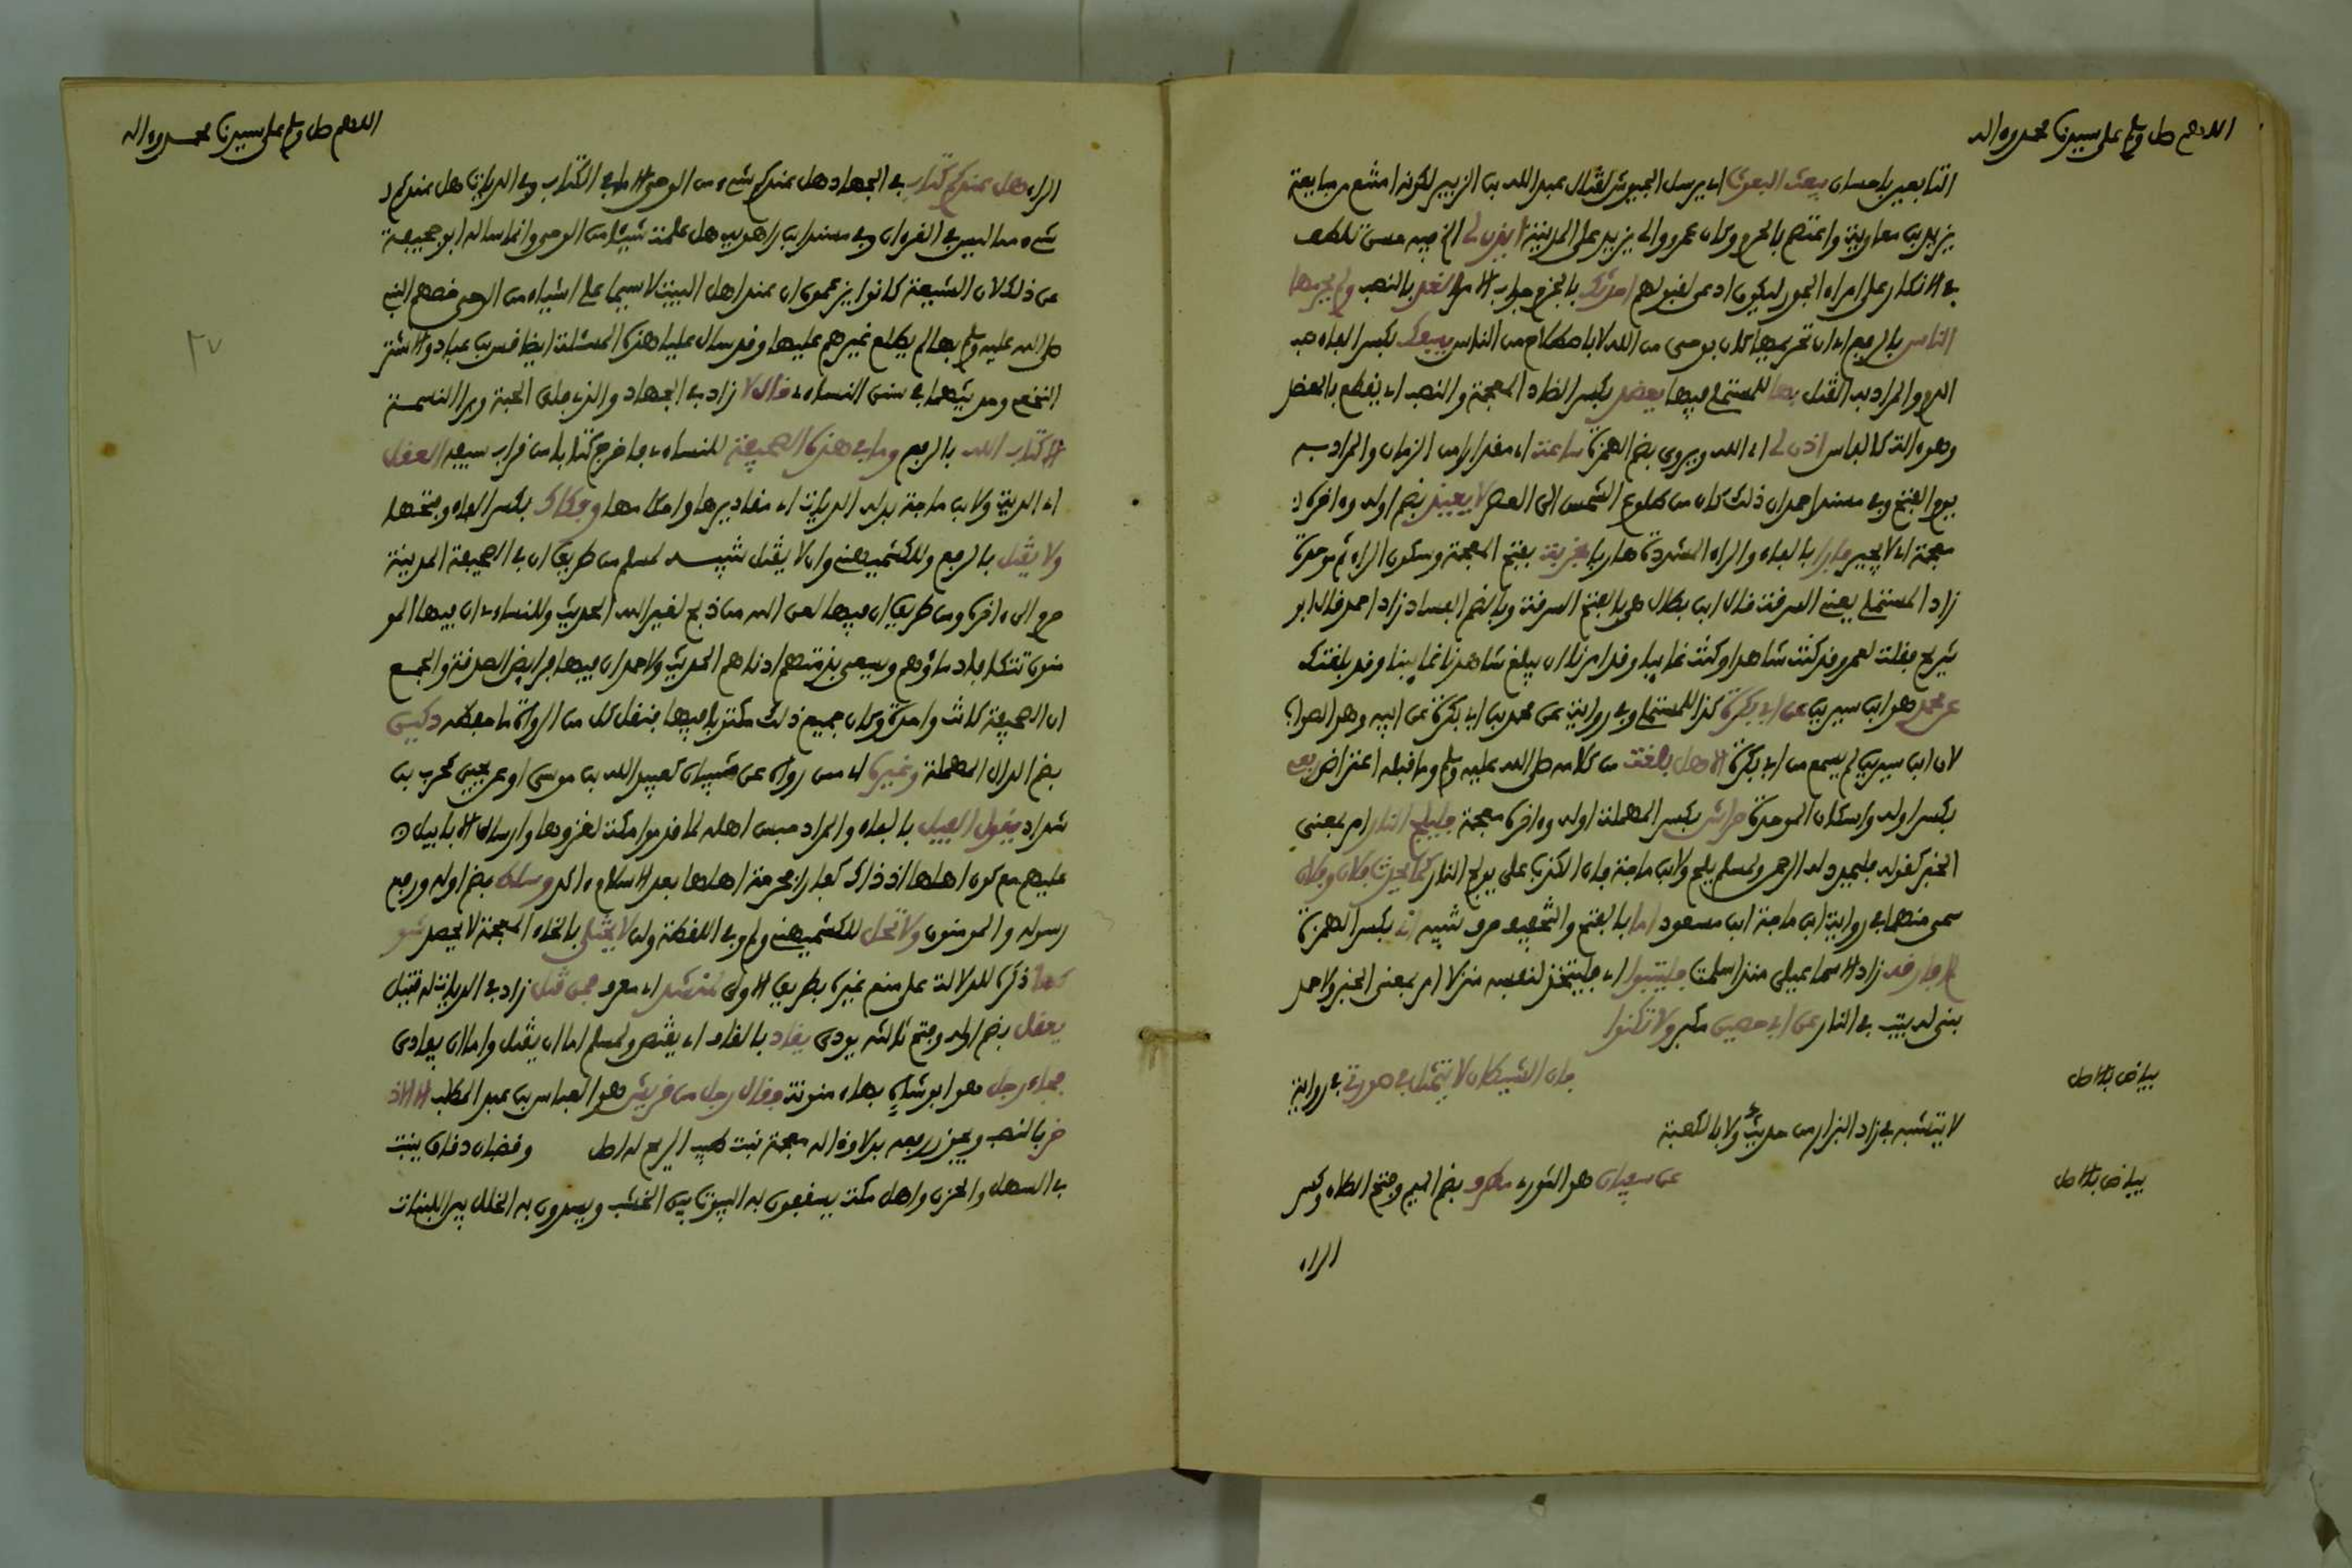 اللهم صل وسلم على سيدنا محمد وءاله
التابعين باحسان يبعث البعوث اي يرسل الجيوش لقتال عبد الله بن الزبير لكونه امتنع من مبايعة
يزيد بن معاوية واعتصم بالحرم وكان عمرو والي يزيد على المدينة ايذن لي الخ فيه حسن تلطف
في الانكار على امراء الجور ليكون ادعى لقبولهم احدثك بالجزم جواب الامر الغد بالنصب ولم يحرمها
الناس بالرفع اي ان تحريمها كان بوحي من الله لا باصطلاح من الناس يسفك بكسر الفاء صب
الدم والمراد به القتل بها للمستملي فيها يعضد بكسر الضاد المعجمة والنصب اي يقطع بالمعضد
وهو ءالة كالفاس اذن لي اي الله ويروى بضم الهمزة ساعة اي مقدارا من الزمان والمراد به
يوم الفتح وفي مسند احمد ان ذلك كان من طلوع الشمس الى العصر لا يعيذ بضم اوله وءاخره ذ
معجمة اي لا يجير فارا بالفاء والراء المشددة هاربا بخربة بفتح المعجمة وسكون الراء ثم موحدة
زاد المستملي يعني السرقة قال ابن بطال هي بالفتح السرقة وبالضم الفساد زاد احمد قال ابو
شريح فقلت لعمرو قد كنت شاهدا وكنت غايبا وقد امرنا ان يبلغ شاهدنا غايبنا وقد بلغتك
عن محمد هو ابن سيرين عن ابي بكرة كذا للمستملي وفي رواية عن محمد بن ابي بكرة عن ابيه وهو الصواب
لان ابن سيرين لم يسمع من ابي بكرة الا هل بلغت من كلامه صلى الله عليه وسلم وما قبله اعتراض ربعي
بكسر اوله واسكان الموحدة حراش بكسر المهملة اوله وءاخره معجمة فليلج النار امر بمعنى
الخبر كقوله فليمدد له الرحمن ولمسلم يلج ولابن ماجة فان الكذب علي يولج النار كما يحدث فلان وفلان
سمي منهما في رواية ابن ماجة ابن مسعود اما بالفتح والتخفيف حرف تنبيه اني بكسر الهمزة
لم افارقه زاد الاسماعيلي منذ اسلمت فليتبوا اي فليتخذ لنفسه منزلا امر بمعنى الخبر ولاحمد
بني له بيت في النار عن ابي حصين مكبر ولا تكنوا
بياض بالاصل
فان الشيطان لا يتمثل في صورتي في رواية
لا يتشبه بي زاد البزار من حديث ولا بالكعبة
بياض بالاصل
عن سفيان هو الثوري مطرف بضم الميم وفتح الطاء وكسر
الراء
اللهم صل وسلم على سيدنا محمد وءاله
الراء هل عندكم كتاب في الجهاد هل عندكم شيء من الوحي الا ما في الكتاب وفي الديات هل عندكم
شيء مما ليس في القرءان وفي مسند ابن راهويه هل علمت شيئا من الوحي وانما ساله ابو جحيفة
عن ذلك لان الشيعة كانوا يزعمون ان عند اهل البيت لا سيما علي اشياء من الوحي خصهم النبي
صلى الله عليه وسلم بها لم يطلع غيرهم عليها وقد سال عليا هذه المسئلة ايضا قيس بن عباد والاشتر
النخعي وحديثهما في سنن النسائي قال لا زاد في الجهاد والذي فلق الحبة وبرا النسمة
الا كتاب الله بالرفع وما في هذه الصحيفة للنسائي فاخرج كتابا من قراب سيفه العقل
اي الدية ولابن ماجة بدله الديات اي مقاديرها واحكامها وفكاك بكسر الفاء وفتحها
ولا يقتل بالرفع وللكشميهني وان لا يقتل تنبيه لمسلم من طريق ان في الصحيفة المدينة
حرم الى ءاخره ومن طريق ان فيها لعن الله من ذبح لغير الله الحديث وللنسائي ان فيها المو
منون تتكافا دماؤهم ويسعى بذمتهم ادناهم الحديث ولاحمد ان فيها فرايض الصدقة والجمع
ان الصحيفة كانت واحدة وكان جميع ذلك مكتوبا فيها فنقل كل من الرواة ما حفظه دكين
بضم الدال المهملة وغيره اي ممن رواه عن شيبان كعبيد الله بن موسى او عن يحيى كحرب بن
شداد يقول الفيل بالفاء والمراد حبس اهله لما قدموا مكة لغزوها وارسال الابابيل
عليهم مع كون اهلها اذ ذاك كفارا فحرمة اهلها بعد الاسلام ءاكد وسلط بضم اوله ورفع
رسوله والمومنون ولا تحل للكشميهني ولم وفي اللقطة ولن لا يختلى بالخاء المعجمة لا يحصد شو
كها ذكره للدلالة على منع غيره بطريق الاولى لمنشد اي معرف فمن قتل زاد في الديات له قتيل
يعقل بضم اوله وفتح ثالثه يودى يقاد بالقاف اي يقتص ولمسلم اما ان يقتل واما ان يفادى
فجاء رجل هو ابو شاه بهاء منونة فقال رجل من قريش هو العباس بن عبد المطلب الا الاذ
خر بالنصب ويجوز رفعه بدلا وذاله معجمة نبت طيب الريح له اصل وقضبان دقاق ينبت
في السهل والحزن واهل مكة يسقفون به البيوت بين الخشب ويسدون به الخلل بين اللبنات
٢٧